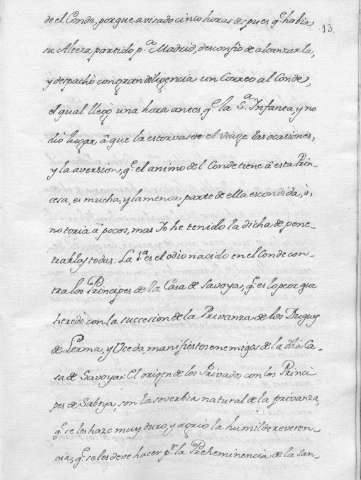 13.
del Conde, porque avisado cinco horas despues q̃ había
su Alteza partido p.ª Madrid, desconfió de alcanzarla,
y despachó con gran deligencia un Correo al Conde,
el qual llegó una hora antes q̃ la S.ª Infanta, y no
dió lugar á que la estorvase el viage las ocasiones,
y la aversion, q̃ el animo del Conde tiene á esta Prin-
cesa, es mucha, y la menor parte de ella escondida, i
notoria á pocos, mas Yo he tenido la dicha de pene-
trarlos todos. La 1.ª es el odio nacido en el Conde con-
tra los Príncipes de la Casa de Savoya, q̃ es lo peor que
heredó con la succesion de la Privanza de los Duques
de Lerma, y Uceda, manifiestos enemigos de la Ca-
sa de Savoya: El origen de los Privados con los Princi-
pes de Saboya, son la sovervia natural de la privanza,
q̃ se les haze muy duro, y agrio la humilde reveren-
cia, q̃ se les deve hacer p.r la Preheminencia de la san-